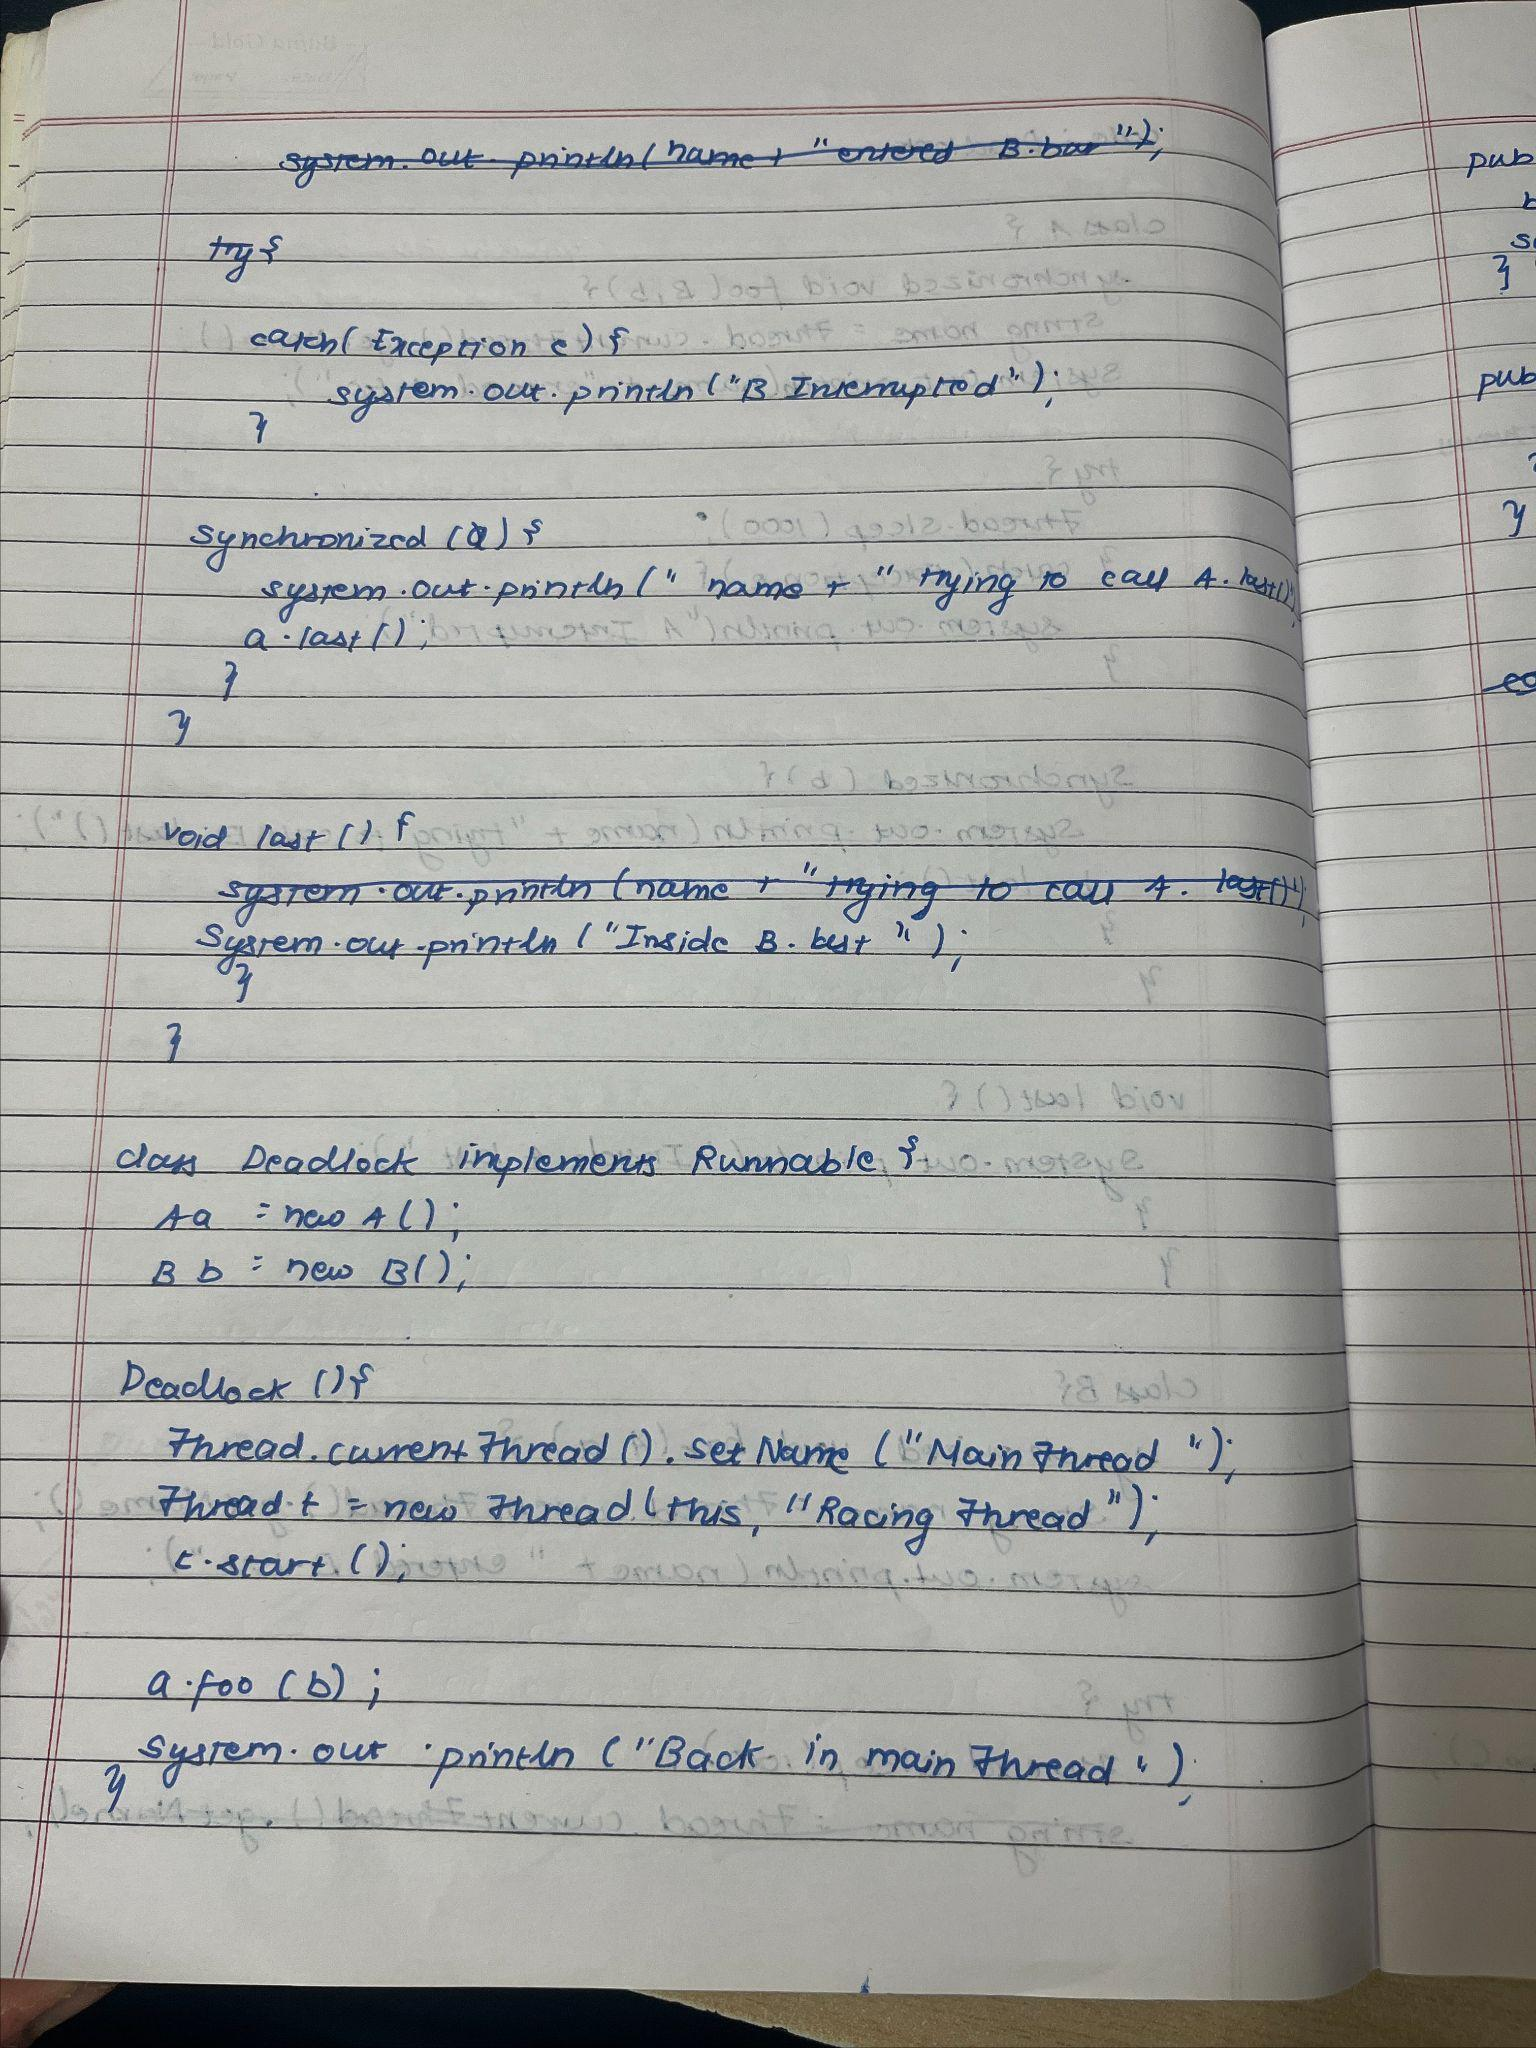 system.out.println(name + "entered B.bar");
try {
catch(Exception e) {
system.out.println("B Interrupted");
}
synchronized (a) {
system.out.println(" name + "trying to call A.last()");
a.last();
}
}
void last () {
system.out.println (name + "trying to call A. last()");
System.out.println ("Inside B. last ");
}
}
class Deadlock implements Runnable {
A a = new A();
B b = new B();
Deadlock () {
Thread.currentThread().setName ("Main Thread ");
Thread t = new Thread(this, "Racing Thread");
t.start();
a.foo (b) ;
System.out.println ("Back in main Thread ");
}
pub
b
}
pub
}